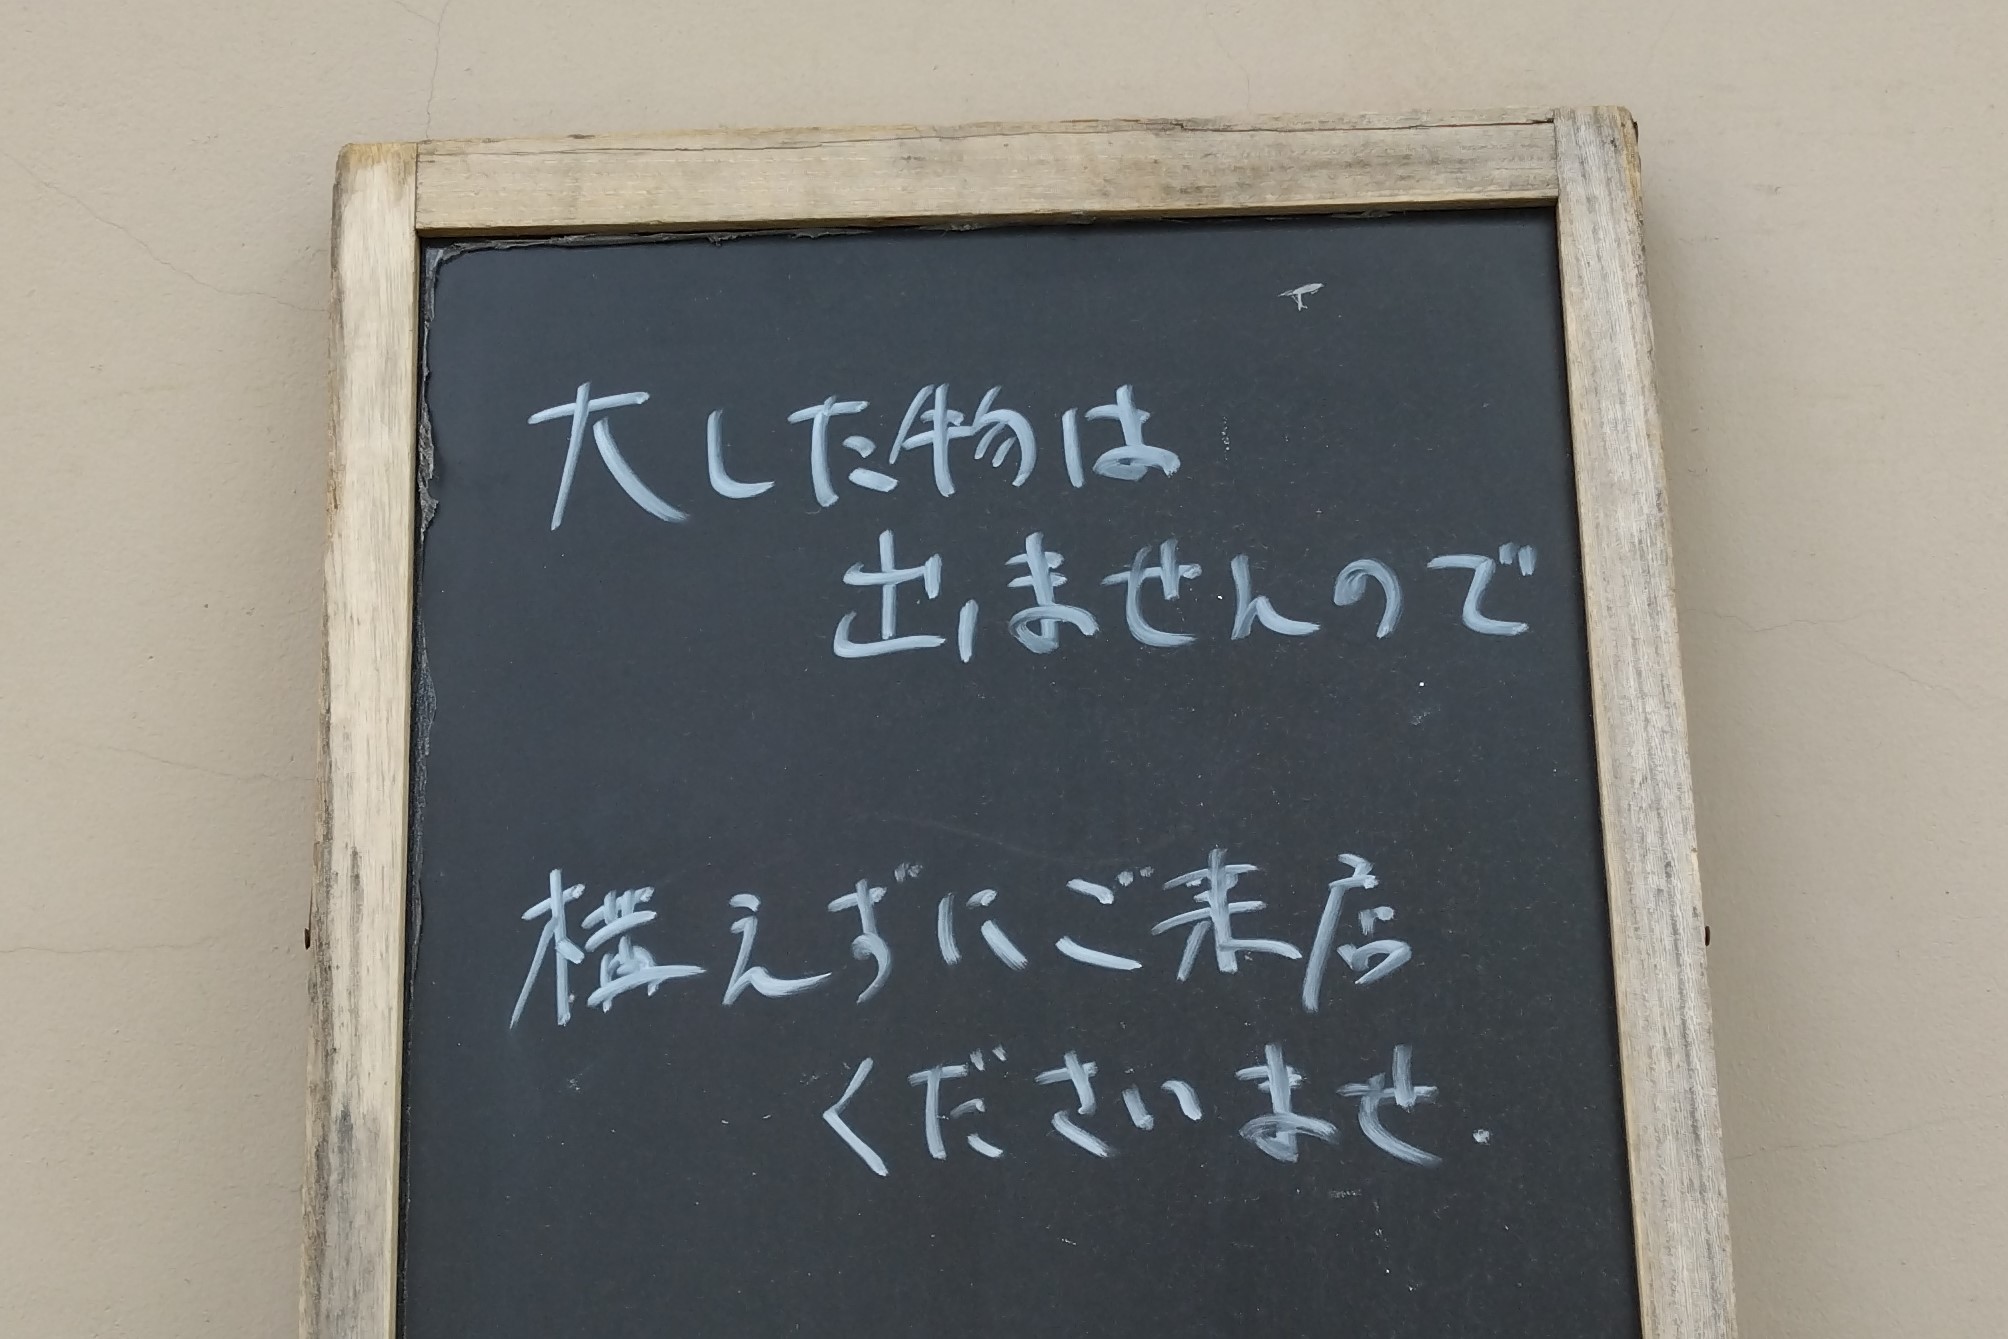 大した物は
出ませんので
構えずにご来店
くださいませ.